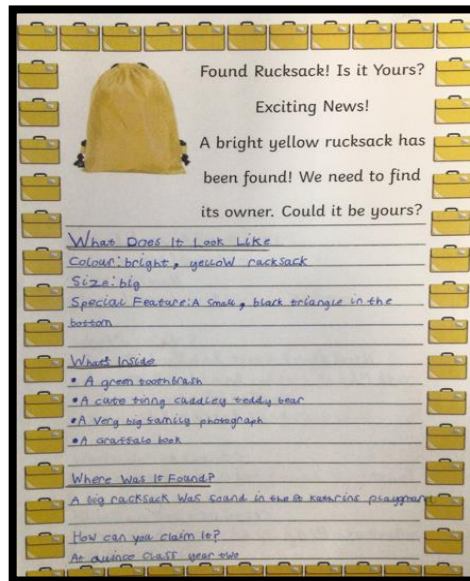 Found Rucksack! Is it Yours?
Exciting News!
A bright yellow rucksack has
been found! We need to find
its owner. Could it be yours?
What Does It Look Like
Colour: bright, yellow racksack
Size: big
Special Feature: A small, black triangle in the
bottom
What's Inside
• A green toothbrash
• A cute tinng cuddley teddy bear
• A Very big family photograph
• A graffalo book
Where Was It Found?
A big racksack was found in the st kathrins playground
How can you claim It?
At quince class year two